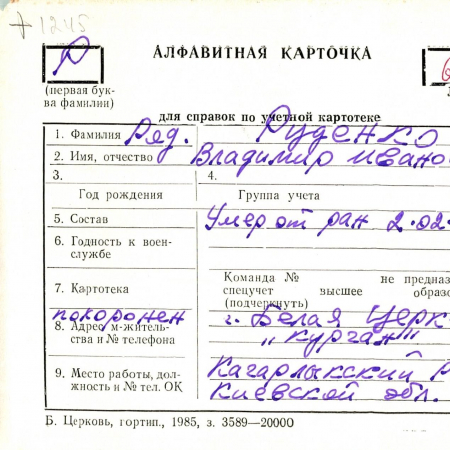 + 1245
АЛФАВИТНАЯ КАРТОЧКА
Р
(первая бук-
ва фамилии)
для справок по учетной картотеке
1. Фамилия Ряд. Руденко
2. Имя, отчество Владимир Ивано
3. 4.
Год рождения Группа учета
5. Состав Умер от ран 2.02.
6. Годность к воен-
службе
Команда № не предназ
7. Картотека спецучет высшее образо
(подчеркнуть)
похоронен г. Белая Церк
8. Адрес м-житель-
ства и № телефона „Курган"
9. Место работы, дол- Кагарлыкский Р
жность и № тел. ОК Киевской обл.
Б. Церковь, гортип., 1985, з. 3589—20000